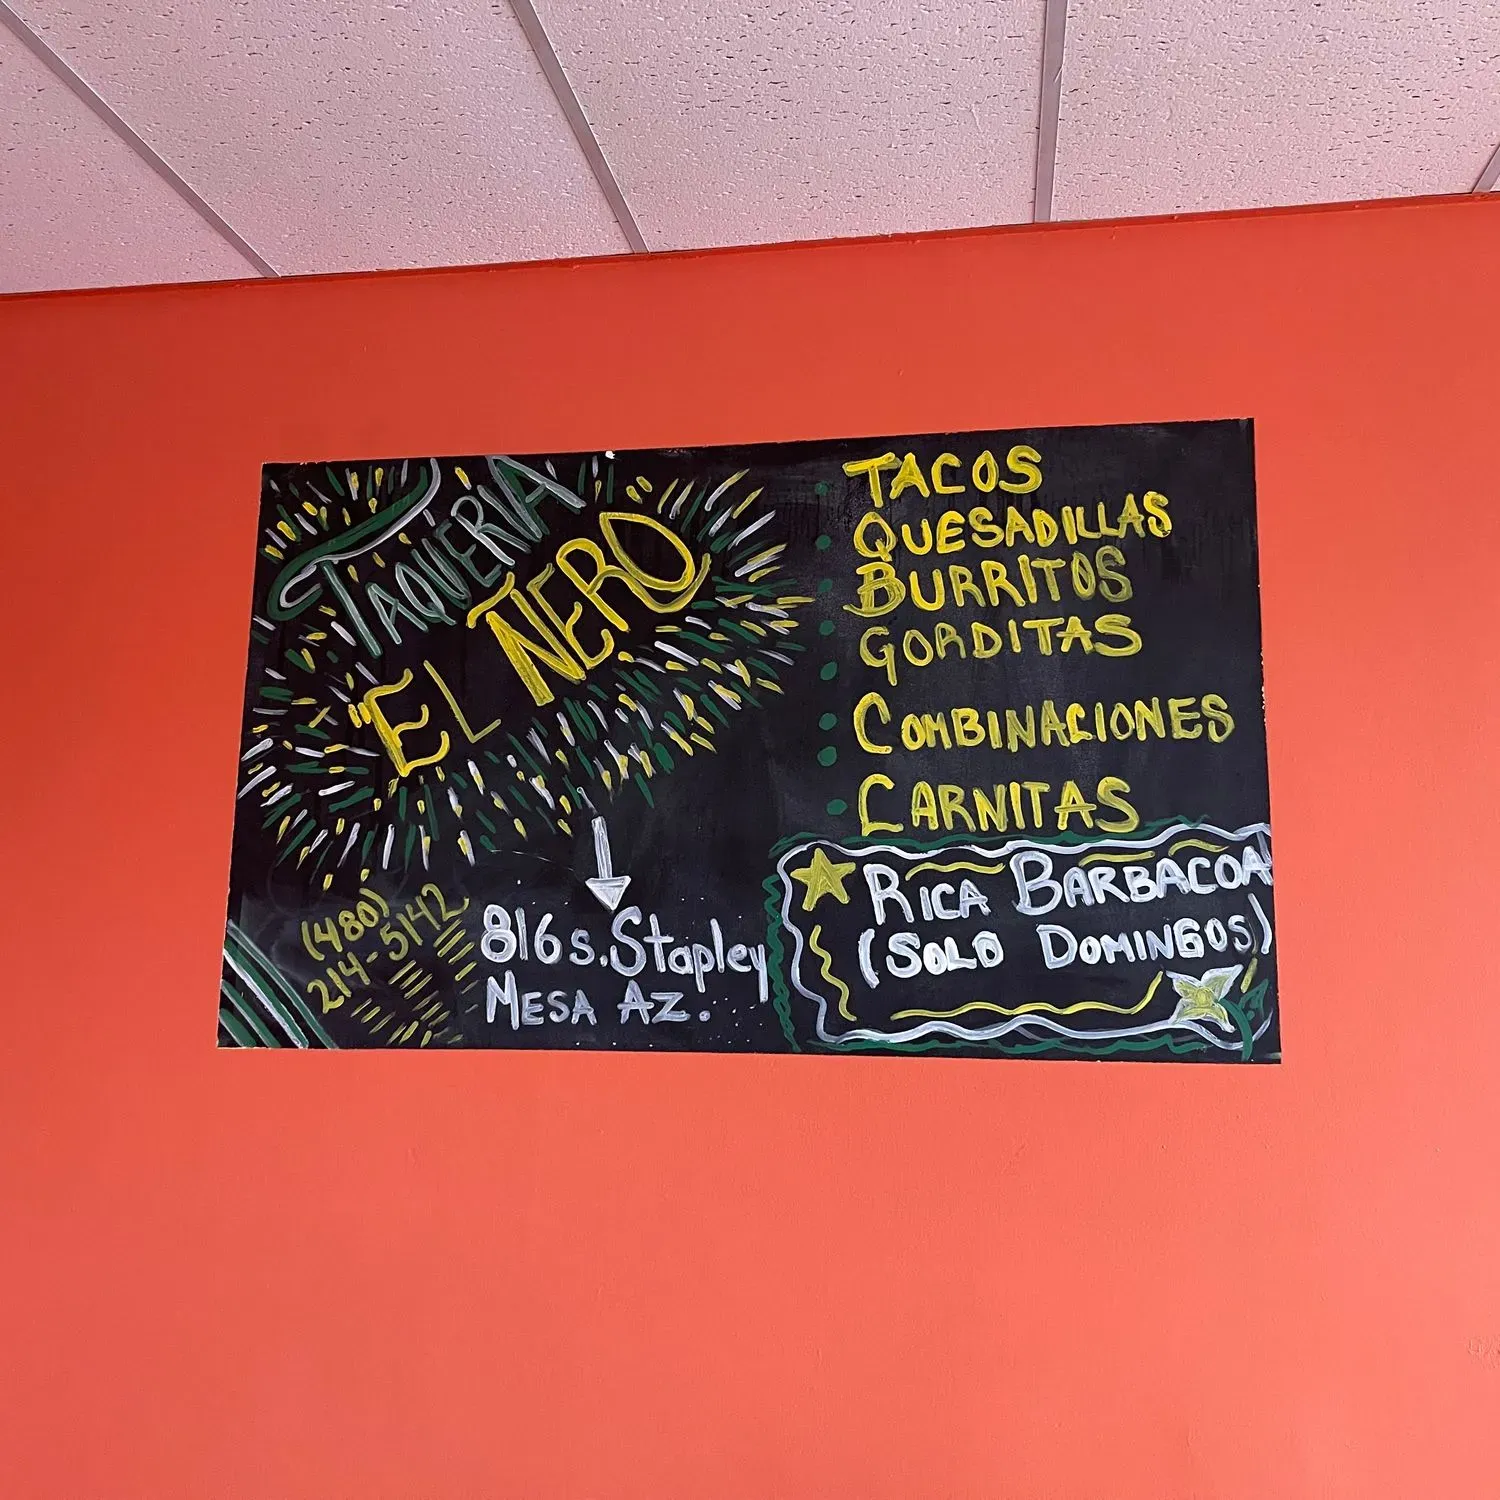 TAQUERIA
"EL ÑERO
(480)
214-5142
816 s. Stapley
MESA AZ.
TACOS
QUESADILLAS
BURRITOS
GORDITAS
COMBINACIONES
CARNITAS
RICA BARBACOA
(SOLO DOMINGOS)